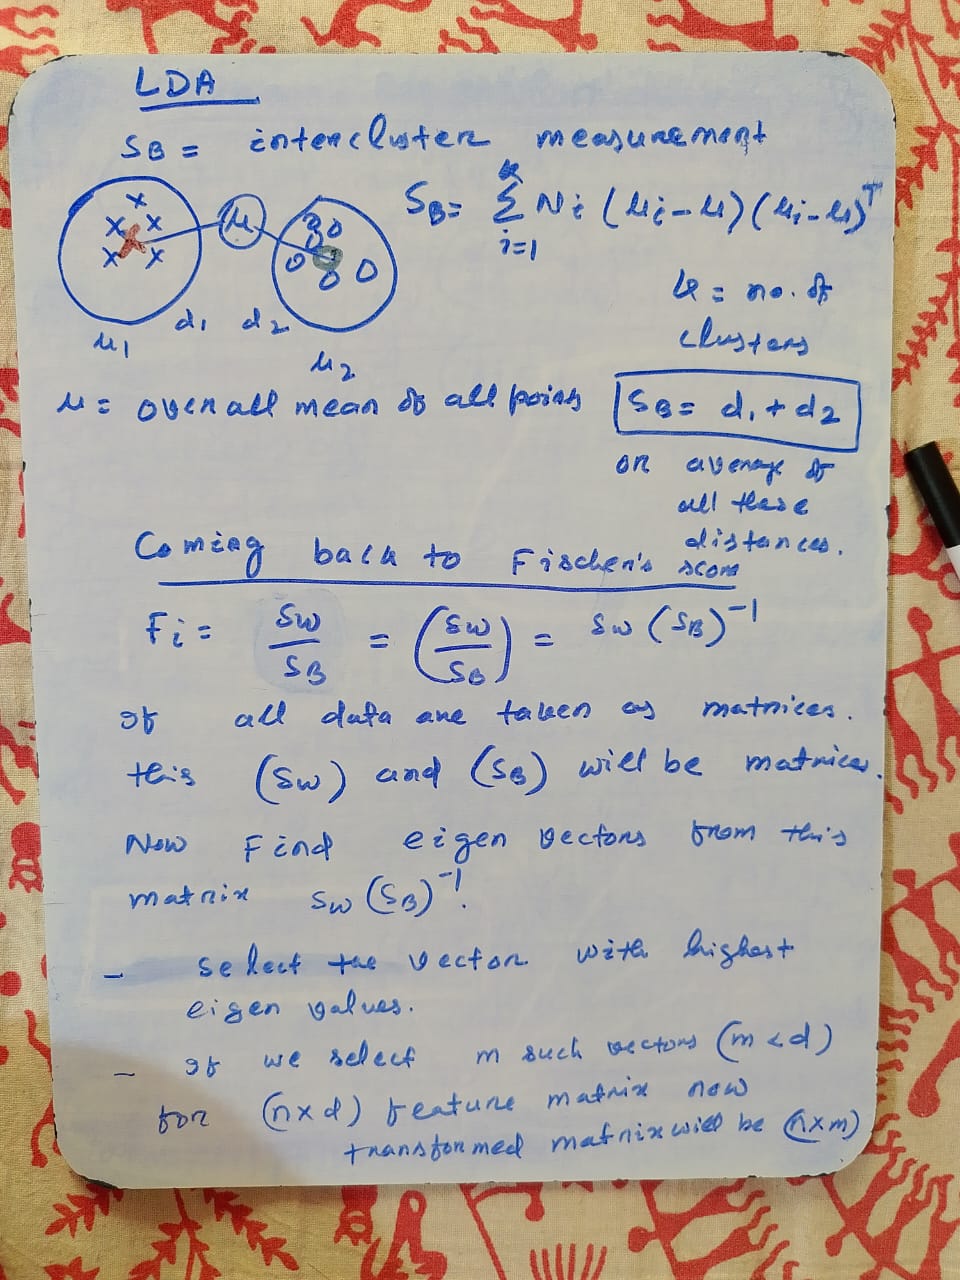 LDA
SB = intercluster measurement
SB = Σ Ni (μi - μ) (μi - μ)^T
k
i=1
μ
k = no. of
clusters
d1 d2
μ1
μ2
μ = overall mean of all points
SB = d1 + d2
or average of
all these
distances.
Coming back to Fischer's score
Fi = Sw/SB = (Sw/SB) = Sw (SB)^-1
If all data are taken as matrices.
this (Sw) and (SB) will be matrices.
Now Find eigen vectors from this
matrix Sw (SB)^-1.
- Select the vector with highest
eigen values.
- If we select m such vectors (m < d)
for (n x d) feature matrix now
transformed matrix will be (n x m)